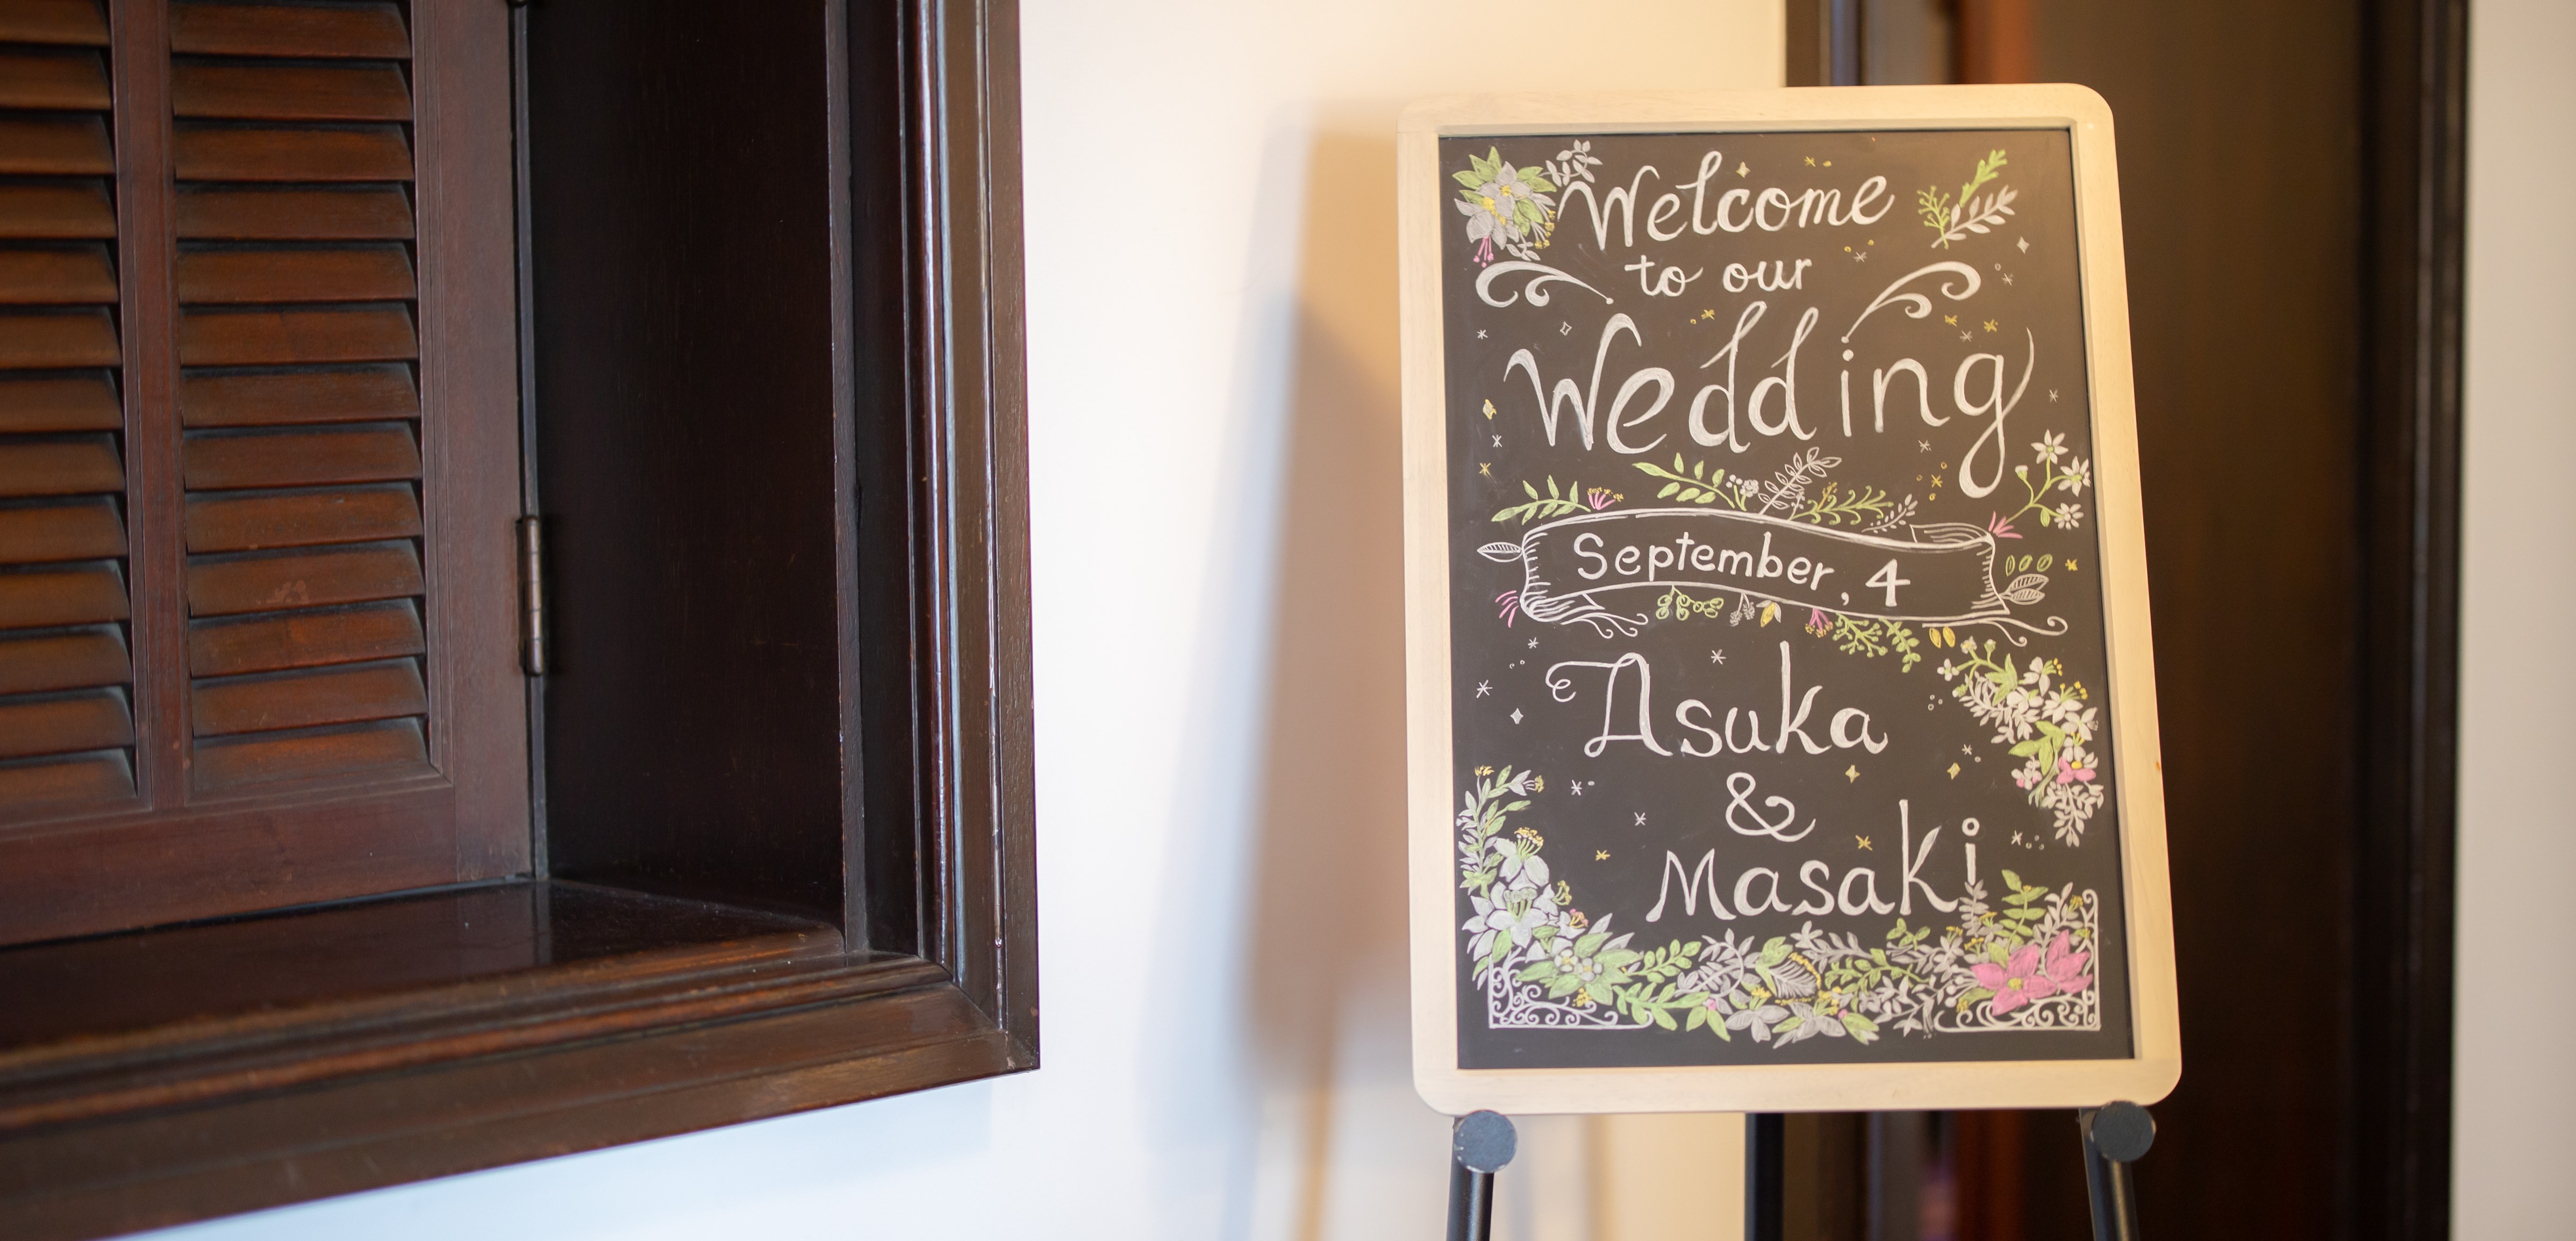 Welcome
to our
Wedding
September, 4
Asuka
&
Masaki